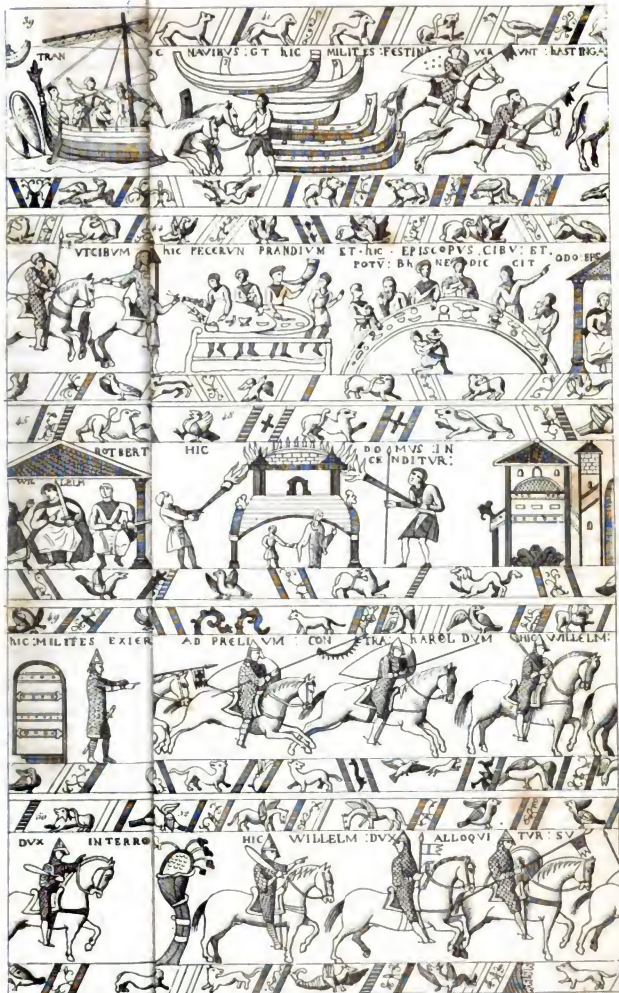 39 41
TRAN E NAVIBVS : GT hIC MILITES : FESTINA VER VNT : hASTINGA
VT CIBVM hIC FECERVN PRANDIVM ET · hIC · EPISCOPVS . CIBV : ET .
POTV̄ : BE NE DIC CIT ODO : EPS
45 48
ROTBERT HIC DOMVS : IN
WIL LELM CE NDITVR :
49
hIC : MILITES EXIER AD PRELIVM : CON TRA : hAROLDVM hIC WILLELM :
50 52
DVX INTERRO HIC WILLELM : DVX ALLOQVI TVR : SV